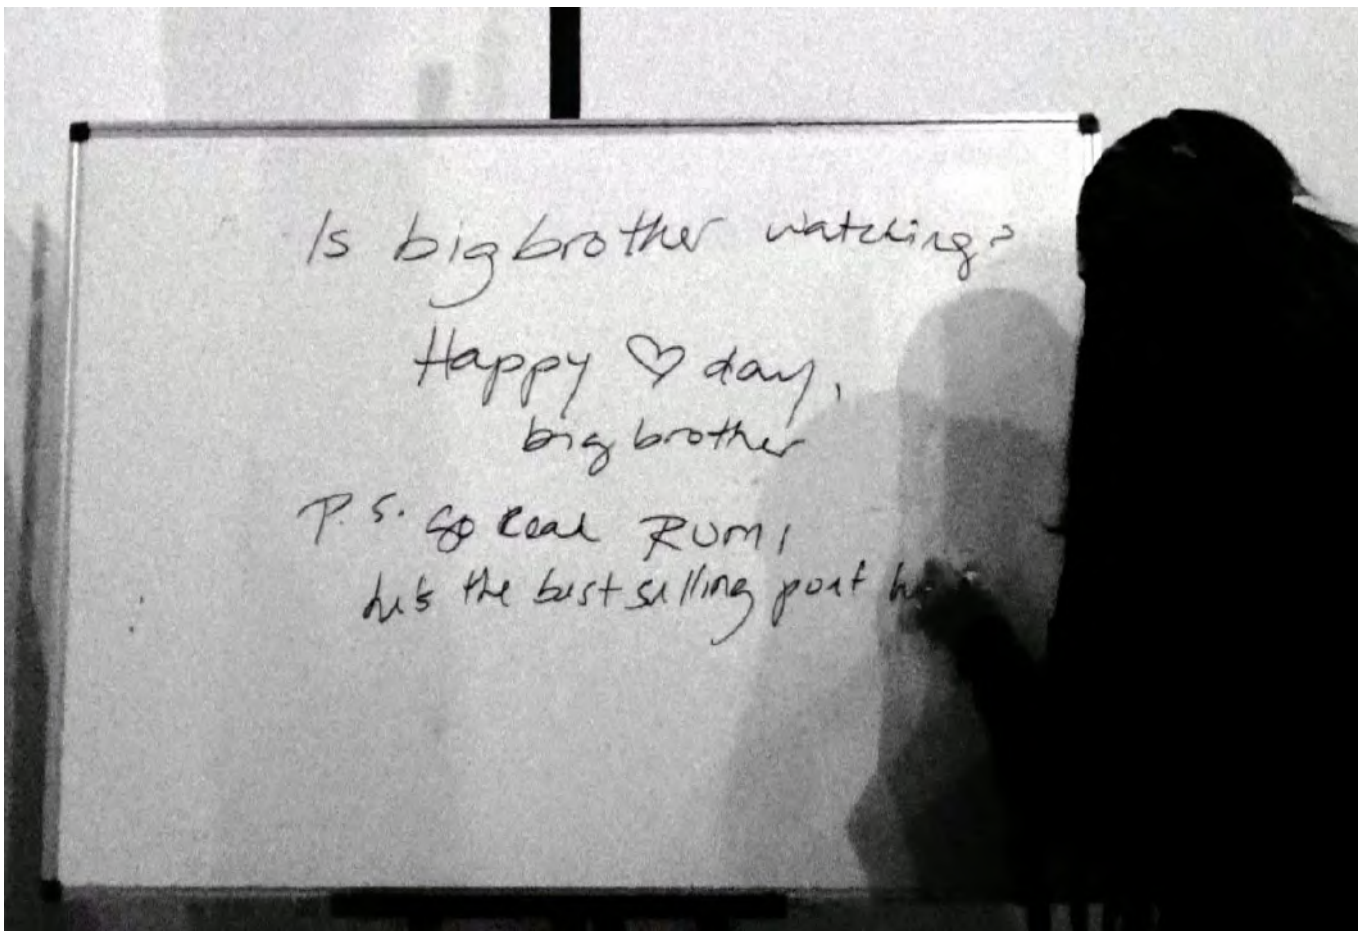 Is big brother watching?
Happy ♡ day,
big brother
P.S. go read RUMI
he's the best selling poet